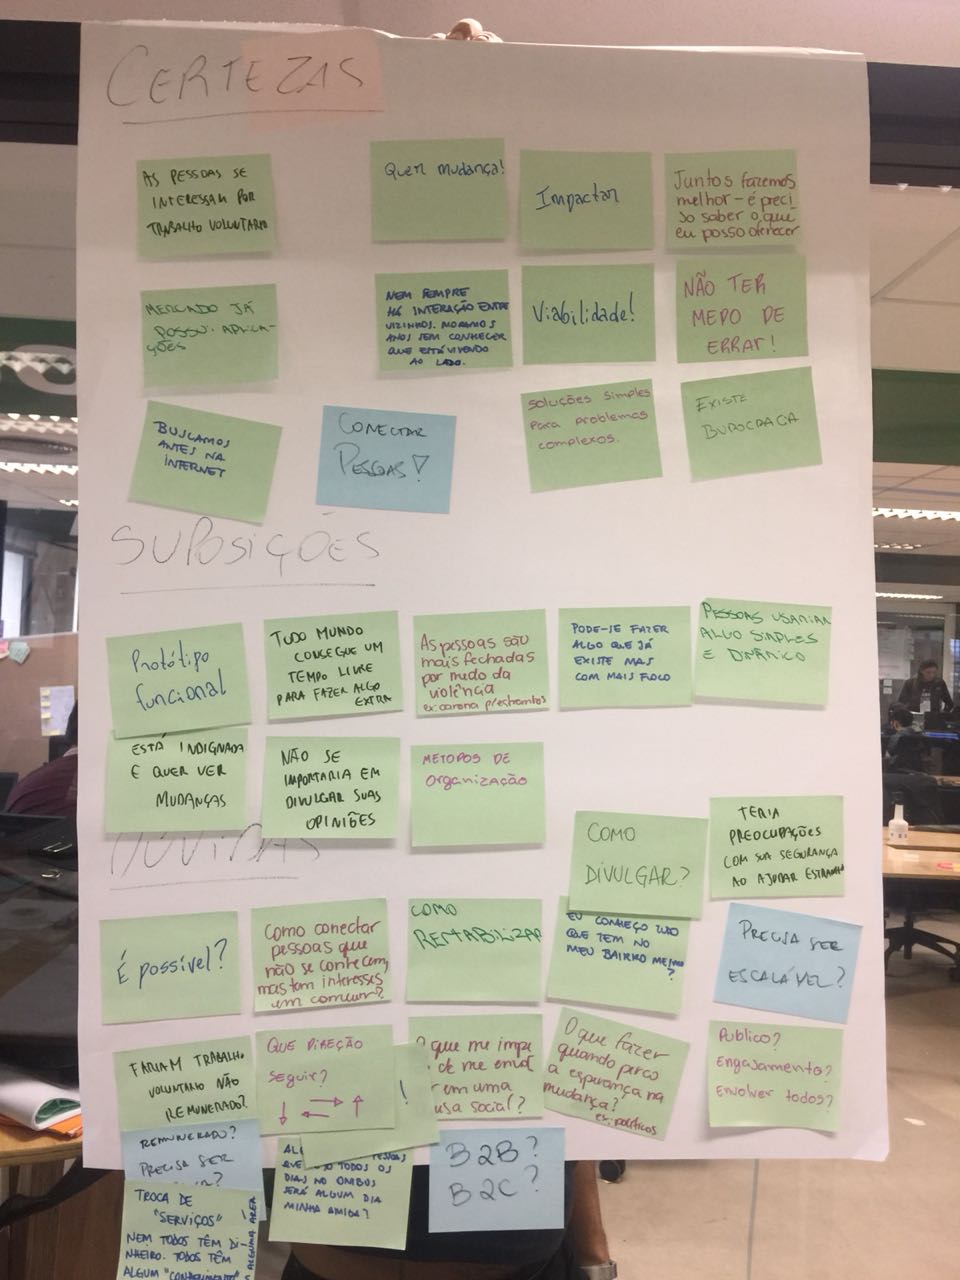 CERTEZAS
AS PESSOAS SE
INTERESSAM POR
TRABALHO VOLUNTARIO
Quer mudança!
Impactar
Juntos fazemos
melhor - é preci
so saber o que
eu posso oferecer
MERCADO JÁ
POSSUI APLICA-
ÇÕES
NEM SEMPRE
HÁ INTERAÇÃO ENTRE
VIZINHOS. MORAMOS
ANOS SEM CONHECER
QUE ESTÁ VIVENDO
AO LADO.
Viabilidade!
NÃO TER
MEDO DE
ERRAR!
BUSCAMOS
ANTES NA
INTERNET
CONECTAR
PESSOAS!
SOLUÇÕES SIMPLES
Para problemas
complexos.
EXISTE
BUROCRACIA
SUPOSIÇÕES
Protótipo
funcional
TUDO MUNDO
CONSEGUE UM
TEMPO LIVRE
PARA FAZER ALGO
EXTRA
As pessoas são
mais fechadas
por medo da
violência
ex: carona
PODE-SE FAZER
ALGO QUE JÁ
EXISTE MAS
COM MAIS FOCO
PESSOAS USARIAM
ALGO SIMPLES
E DINÂMICO
ESTÁ INDIGNADA
E QUER VER
MUDANÇAS
NÃO SE
IMPORTARIA EM
DIVULGAR SUAS
OPINIÕES
METODOS DE
Organização
DÚVIDAS
COMO
DIVULGAR?
TERIA
PREOCUPAÇÕES
COM SUA SEGURANÇA
AO AJUDAR ESTRANHO
É possível?
Como conectar
pessoas que
não se conhecem,
mas tem interesses
em comum?
COMO
RENTABILIZAR
EU CONHEÇO TUDO
QUE TEM NO
MEU BAIRRO MESMO
?
PRECISA SER
ESCALÁVEL?
FARIAM TRABALHO
VOLUNTARIO NÃO
REMUNERADO?
QUE DIREÇÃO
Seguir?
!
O que me impe
de me envol
em uma
usa social?
O que fazer
quando perco
a esperança na
mudança?
ex: políticos
Publico?
Engajamento?
Envolver todos?
REMUNERADO?
PRECISA SER
TROCA DE
"SERVIÇOS"
NEM TODOS TÊM DI-
NHEIRO. TODOS TÊM
ALGUM "CONHECIMENTO"
ALGUMA AREA
QUE TODOS OS
DIAS NO ONIBUS
SERÁ ALGUM DIA
MINHA AMIGA?
B2B?
B2C?